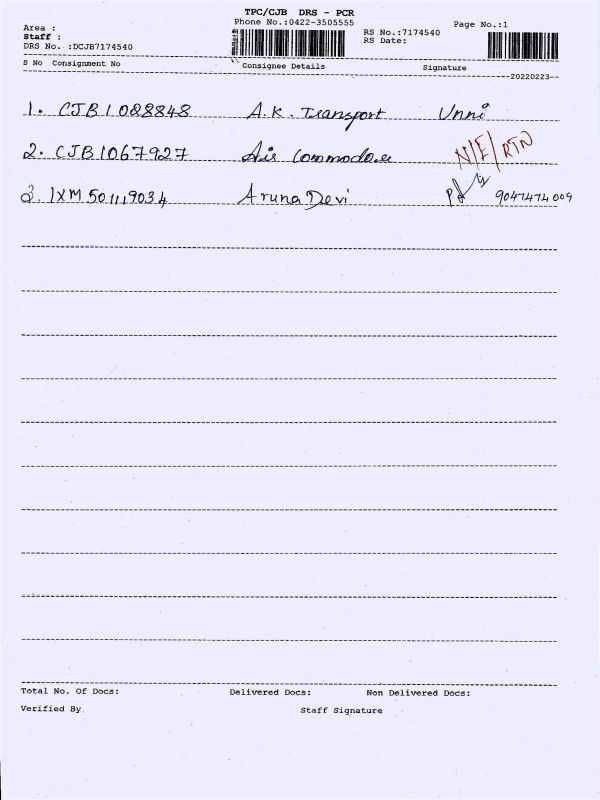 TPC/CJB DRS - PCR
Area : Phone No.:0422-3505555 Page No.:1
Staff : RS No.:7174540
DRS No. :DCJB7174540 RS Date:
S No Consignment No Consignee Details Signature
20220223
1. CJB1028848 A.K. Transport Unni
2. CJB1067927 Air Commodore N/E/RTN
3. IXM501119034 Aruna Devi 9047474009
Total No. Of Docs: Delivered Docs: Non Delivered Docs:
Verified By Staff Signature